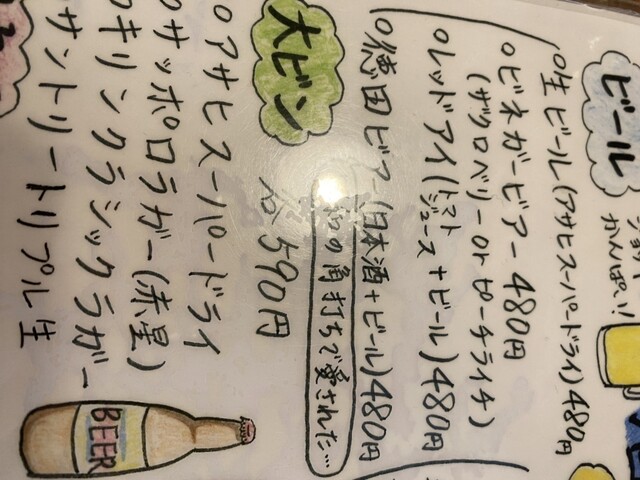 ビール
かんぱーい!
○生ビール(アサヒスーパードライ)480円
○ビネガービアー 480円
(ザクロベリー or ピーチライチ)
○レッドアイ(トマトジュース+ビール)480円
○徳田ビアー(日本酒+ビール)480円
の角打ちで愛された…
大ビン
各590円
○アサヒスーパードライ
○サッポロラガー(赤星)
○キリンクラシックラガー
サントリートリプル生
BEER